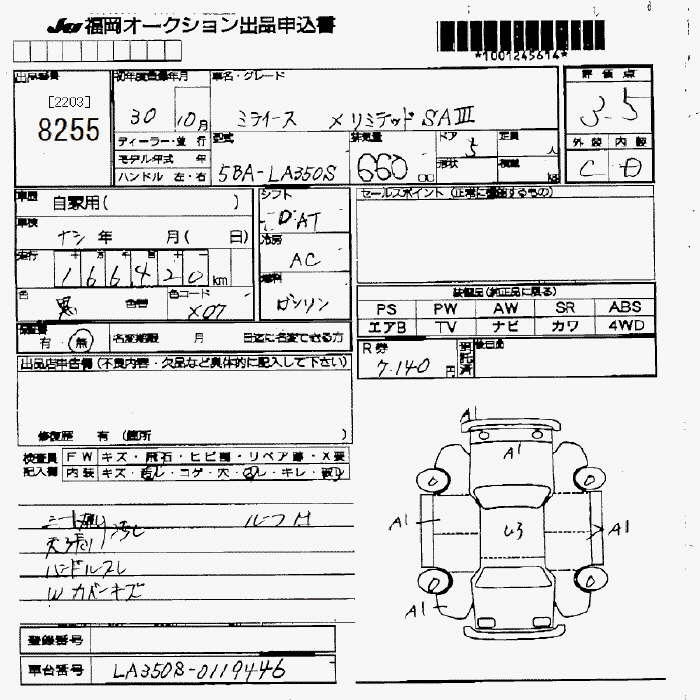 JU 福岡オークション出品申込書
*1001245614*
出品番号 初年度登録年月 車名・グレード 評価点
[2203]
8255
30 10月 ミライース X リミテッド SAIII 3.5
ディーラー・並行 型式 排気量 ドア 定員 外装 内装
モデル年式 年 5 人
ハンドル 左・右 5BA-LA350S 660 cc 形状 積載 kg C D
車歴 自家用( ) シフト セールスポイント (正常に機能するもの)
車検 ナシ 年 月( 日) D AT
走行 十 万 千 百 十 冷房
166420 km AC
色 黒 色替 色コード X07 燃料 ガソリン
装備品(純正品に限る)
PS PW AW SR ABS
エアB TV ナビ カワ 4WD
保証書 有・無 名変期限 月 日迄に名変できる方
R券 7.140 円 後日品
出品店申告欄 (不良内容・欠品など具体的に記入して下さい)
修復歴 有 (箇所 )
検査員 FW キズ・飛石・ヒビ割・リペア跡・X要
記入欄 内装 キズ・汚レ・コゲ・穴・スレ・キレ・破レ
シート破レ 汚レ ルーフ M
天張リ
ハンドルスレ
W カバーキズ
A1
A1
0 0
A1 U3 A1
0 0
A1
登録番号
車台番号 LA350S-0119446